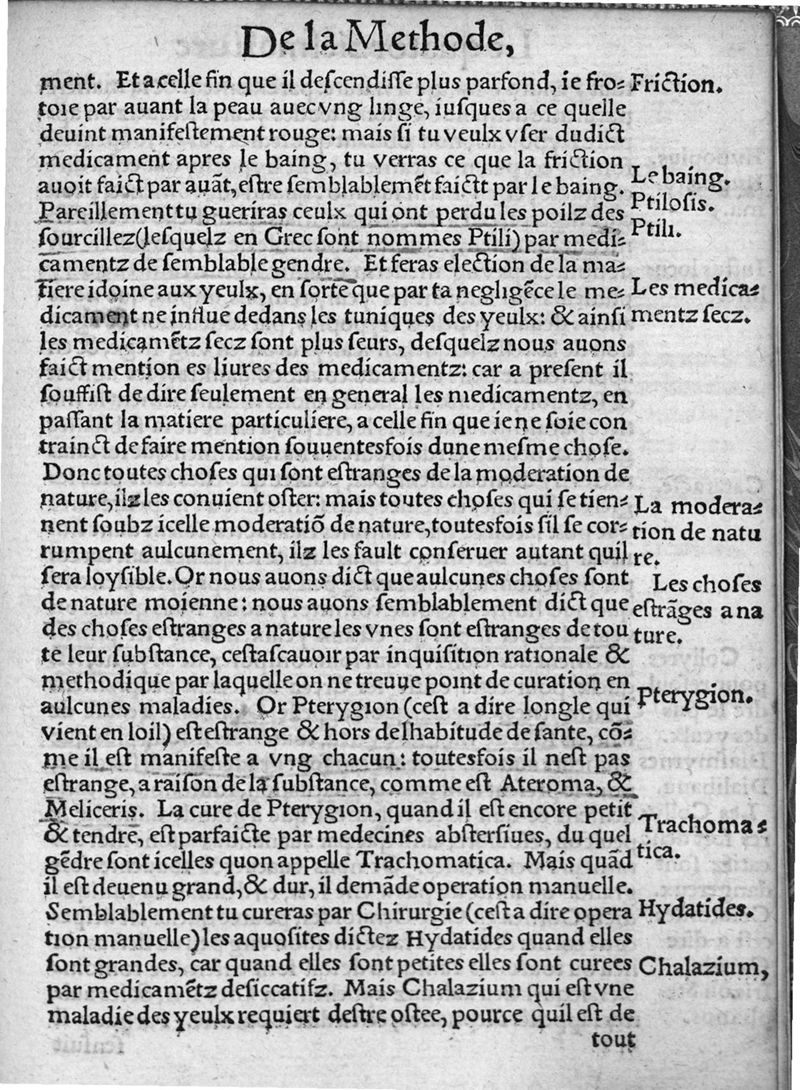 De la Methode,
ment. Et a celle fin que il descendisse plus parfond, ie fro- Friction.
toie par auant la peau auec vng linge, iusques a ce quelle
deuint manifestement rouge: mais si tu veulx vser dudict
medicament apres le baing, tu verras ce que la friction
auoit faict par auāt, estre semblablemēt faictt par le baing. Le baing.
Pareillement tu gueriras ceulx qui ont perdu les poilz des Ptilosis.
sourcillez (lesquelz en Grec sont nommes Ptili) par medi- Ptili.
camentz de semblable gendre. Et feras election de la ma-
tiere idoine aux yeulx, en sorte que par ta negligēce le me- Les medica-
dicament ne influe dedans les tuniques des yeulx: & ainsi mentz secz.
les medicamētz secz sont plus seurs, desquelz nous auons
faict mention es liures des medicamentz: car a present il
souffist de dire seulement en general les medicamentz, en
passant la matiere particuliere, a celle fin que ie ne soie con
trainct de faire mention souuentesfois dune mesme chose.
Donc toutes choses qui sont estranges de la moderation de
nature, ilz les conuient oster: mais toutes choses qui se tien- La modera-
nent soubz icelle moderatiō de nature, toutesfois sil se cor- tion de natu
rumpent aulcunement, ilz les fault conseruer autant quil re.
sera loysible. Or nous auons dict que aulcunes choses sont Les choses
de nature moienne: nous auons semblablement dict que estrāges a na
des choses estranges a nature les vnes sont estranges de tou ture.
te leur substance, cestascauoir par inquisition rationale &
methodique par laquelle on ne treuue point de curation en
aulcunes maladies. Or Pterygion (cest a dire longle qui Pterygion.
vient en loil) est estrange & hors de lhabitude de sante, cō-
me il est manifeste a vng chacun: toutesfois il nest pas
estrange, a raison de la substance, comme est Ateroma, &
Meliceris. La cure de Pterygion, quand il est encore petit
& tendre, est parfaicte par medecines abstersiues, du quel Trachoma-
gēdre sont icelles quon appelle Trachomatica. Mais quād tica.
il est deuenu grand, & dur, il demāde operation manuelle.
Semblablement tu cureras par Chirurgie (cest a dire opera Hydatides.
tion manuelle) les aquosites dictez Hydatides quand elles
sont grandes, car quand elles sont petites elles sont curees Chalazium,
par medicamētz desiccatifz. Mais Chalazium qui est vne
maladie des yeulx requiert destre ostee, pource quil est de
tout